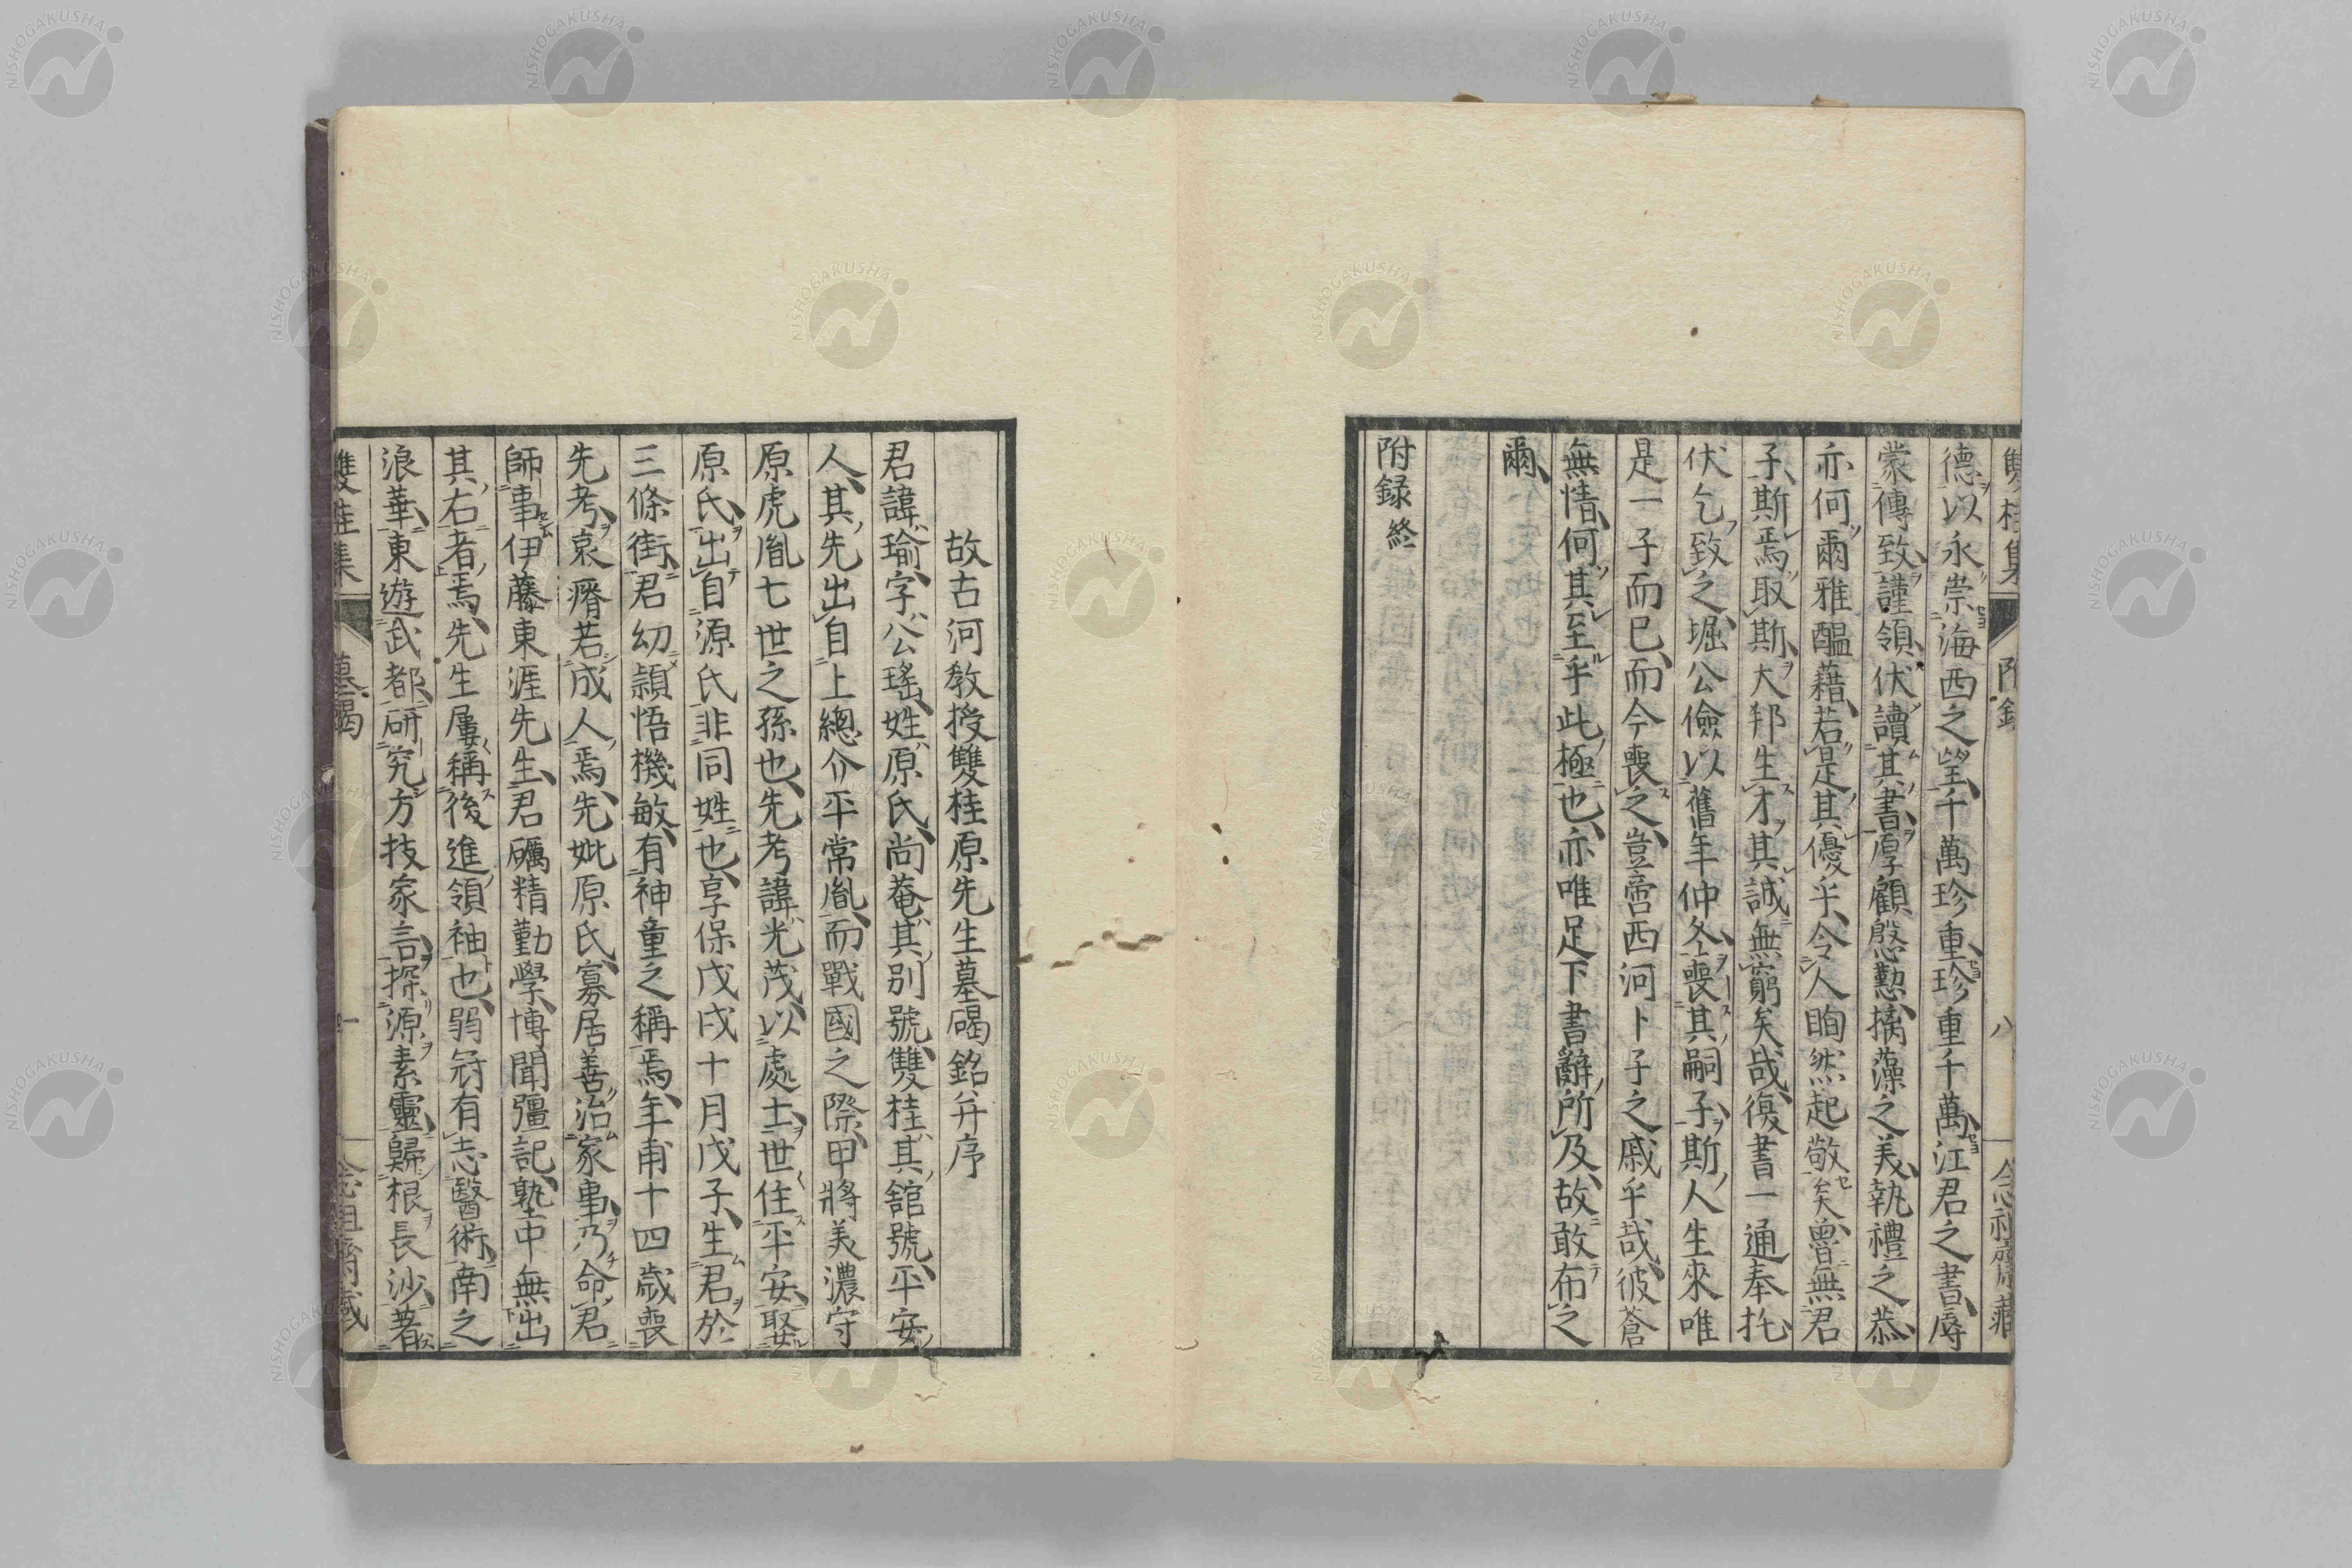 雙桂集 附録 八
德以永崇海西之望、千萬珍重、珍重千萬、江君之書、辱
蒙傳致、謹領、伏讀其書、厚顧慇懃、摛藻之美、執禮之恭、
亦何爾雅醞藉、若是其優乎、令人眴然起敬矣、曾無君
子、斯焉取斯、大邦生才、其誠無窮矣哉、復書一通奉托、
伏乞致之、堀公儉以舊年仲冬、喪其嗣子、斯人生來唯
是一子而已、而今喪之、豈啻西河卜子之戚乎哉、彼蒼
無情、何其至乎此極也、亦唯足下書辭所及、故敢布之
爾、
附録終
故古河教授雙桂原先生墓碣銘并序
君諱瑜、字公瑤、姓原氏、尚菴其別號、雙桂其舘號、平安
人、其先出自上總介平常胤、而戰國之際、甲將美濃守
原虎胤七世之孫也、先考諱光茂、以處士世住平安、娶
原氏、出自源氏、非同姓也、享保戊戌十月戊子、生君於
三條街、君幼頴悟機敏、有神童之稱焉、年甫十四歳喪
先考、哀瘠若成人焉、先妣原氏、寡居善治家事、乃命君
師事伊藤東涯先生、君礪精勤學、博聞彊記、塾中無出
其右者焉、先生屢稱後進領袖也、弱冠有志醫術、南之
浪華、東遊武都、研究方技家言、探源素靈、歸根長沙、著
雙桂集 墓碣 一
NISHOGAKUSHA